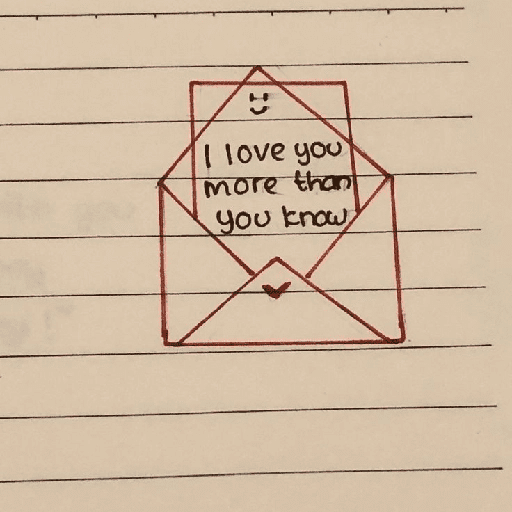 I love you
more than
you know